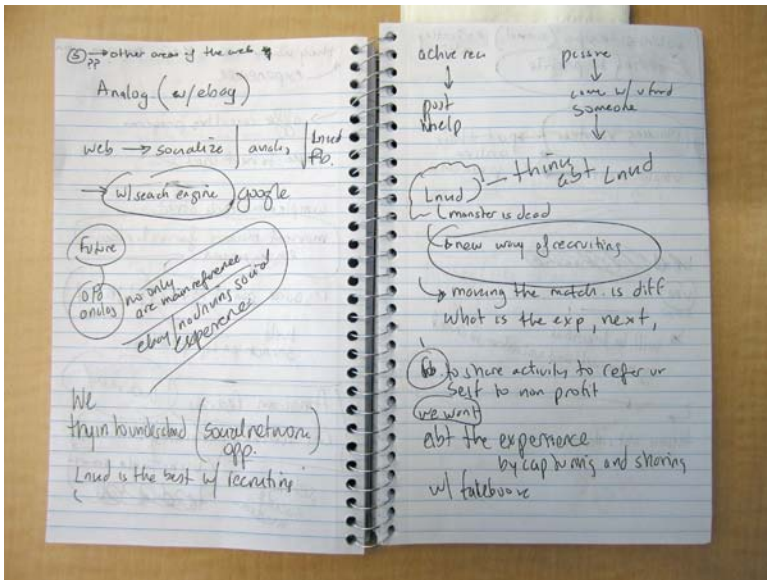 5 → other areas of the web
??
Analog (w/ebay)
web → socialize | analo, | Lnud
Fb.
→ w/seach engine, google
Future
analog
no only
are main reference
ebay/no driving social
experience
We
tryin to understand (social network
app.)
Lnud is the best w/ recruiting
active rec.
passive
↓
↓
post
come w/ u find
help
someone
↓
Lnud — think
abt Lnud
monster is dead
new way of recruiting
↳ moving the match. is diff
What is the exp, next,
fb. to share activity to refer ur
self to non profit
we want
abt the experience
by capturing and sharing
w/